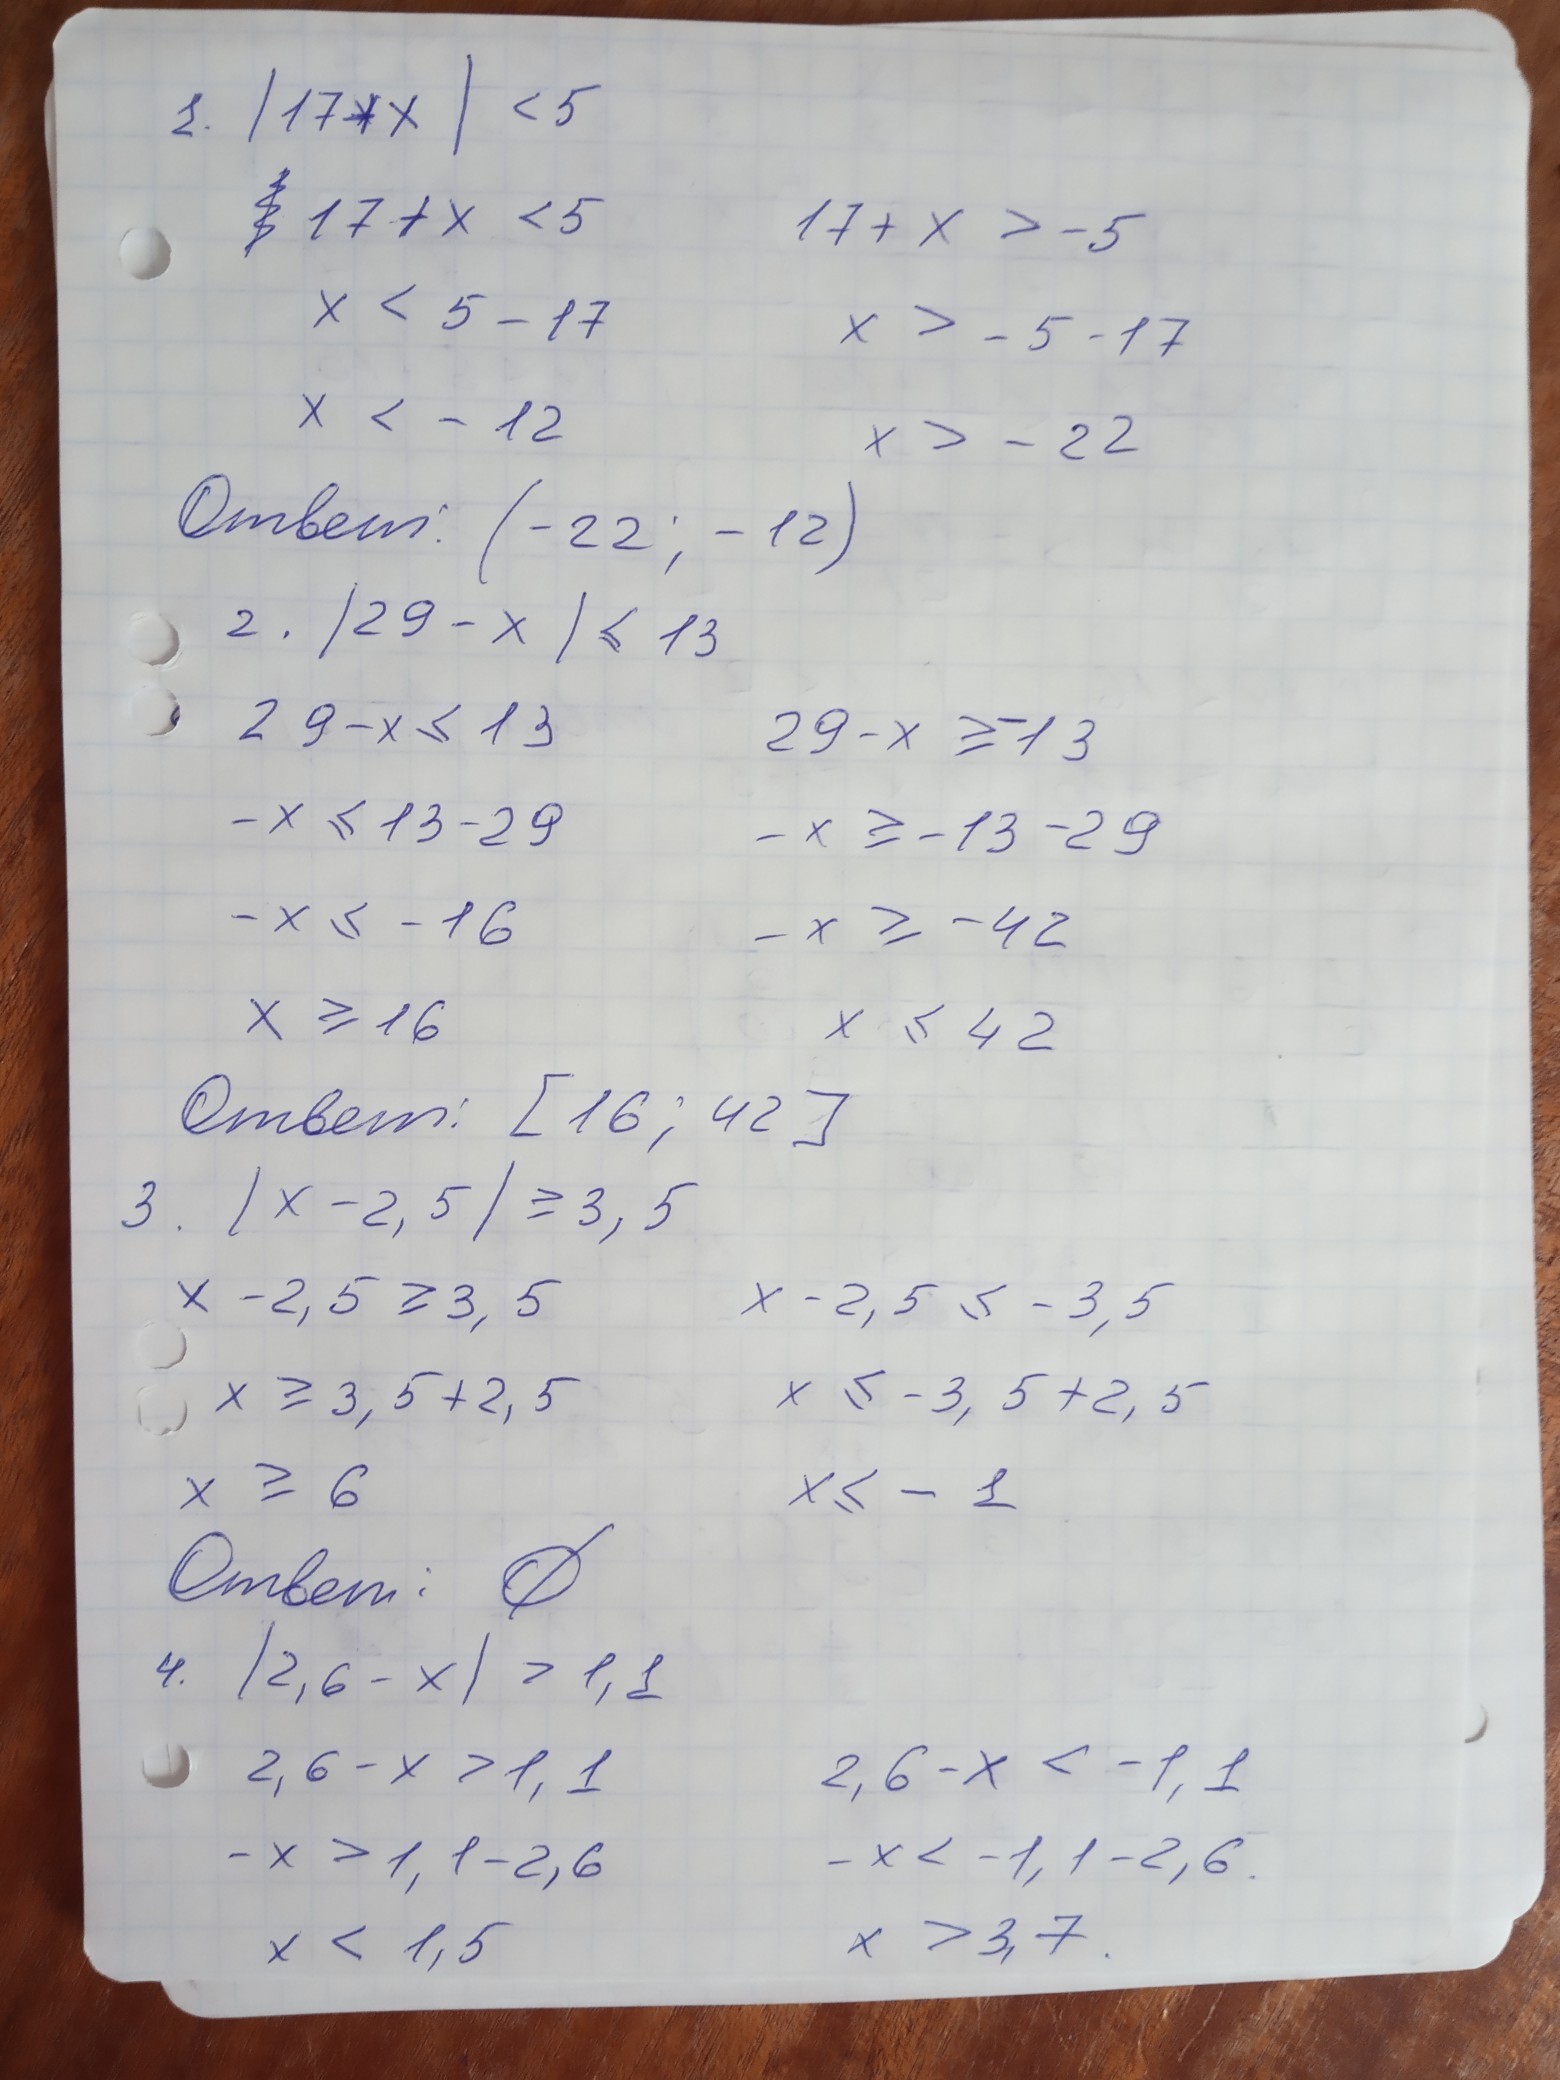 1. |17+x| < 5
17+x < 5 17+x > -5
x < 5-17 x > -5-17
x < -12 x > -22
Ответ: (-22; -12)
2. |29-x| ⩽ 13
29-x ⩽ 13 29-x ⩾ -13
-x ⩽ 13-29 -x ⩾ -13-29
-x ⩽ -16 -x ⩾ -42
x ⩾ 16 x ⩽ 42
Ответ: [16; 42]
3. |x-2,5| ⩾ 3,5
x-2,5 ⩾ 3,5 x-2,5 ⩽ -3,5
x ⩾ 3,5+2,5 x ⩽ -3,5+2,5
x ⩾ 6 x ⩽ -1
Ответ: ∅
4. |2,6-x| > 1,1
2,6-x > 1,1 2,6-x < -1,1
-x > 1,1-2,6 -x < -1,1-2,6.
x < 1,5 x > 3,7.